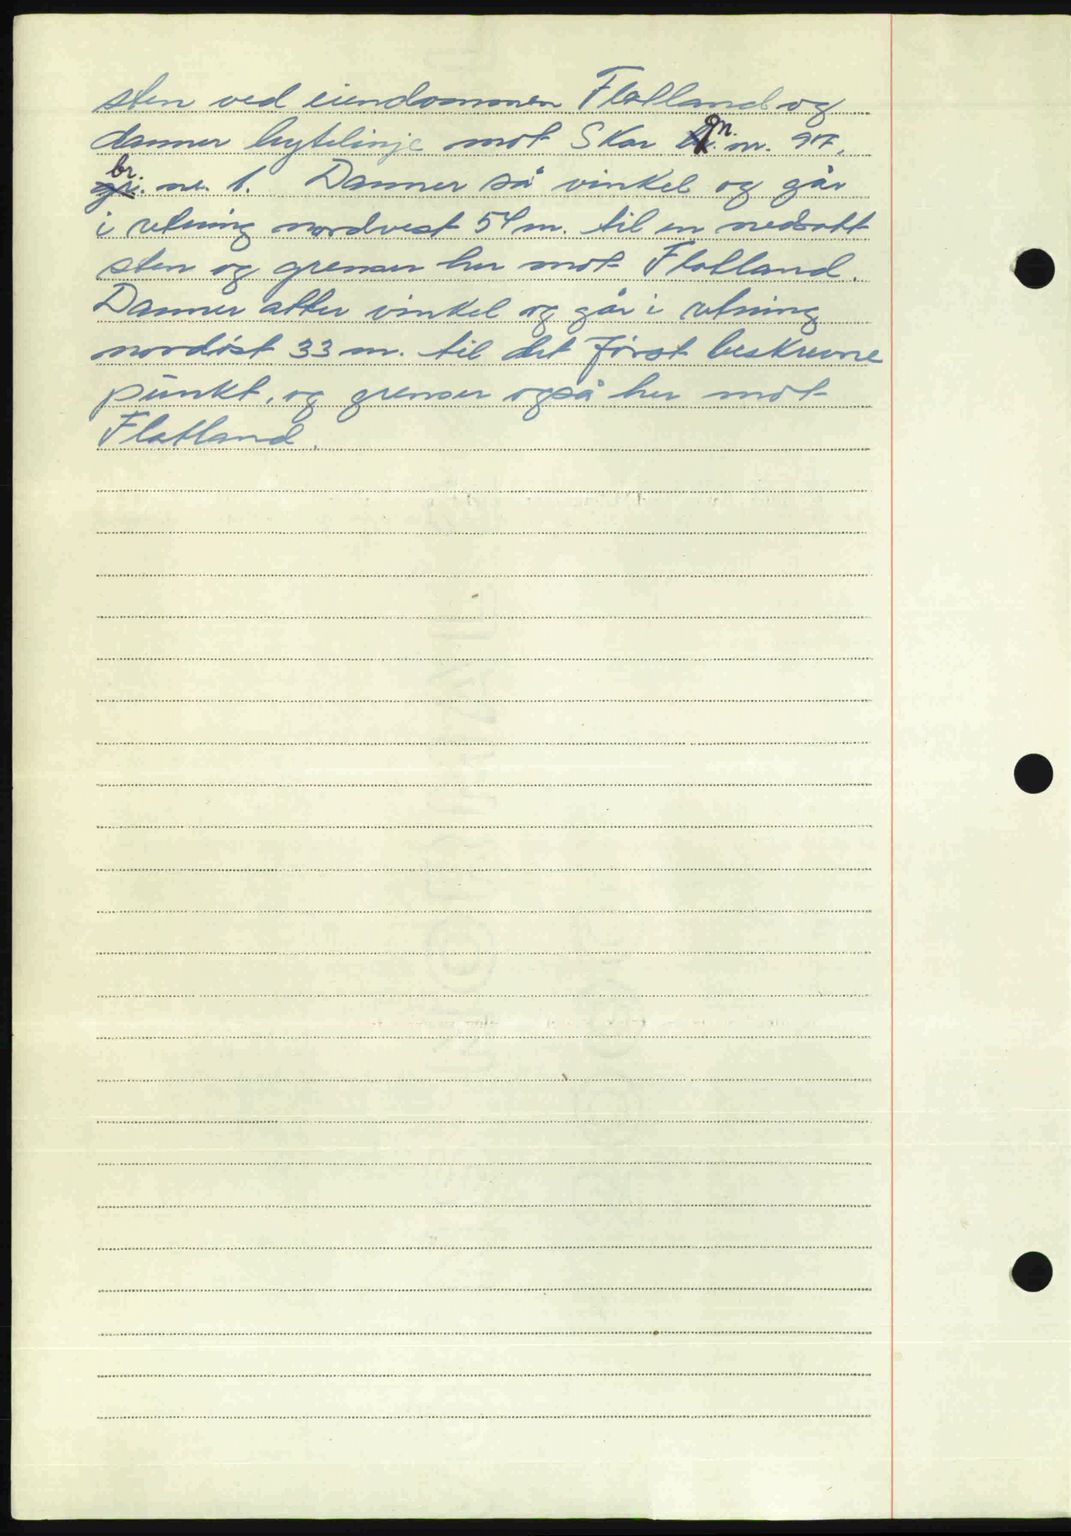 sten ved eiendommen Flatland og
danner bytelinje mot Skar gn. nr. 97,
br. nr. 1. Danner så vinkel og går
i retning nordvest 54 m. til en nedsatt
sten og grenser her mot Flatland.
Danner atter vinkel og går i retning
nordöst 33 m. til det först beskrevne
punkt, og grenser også her mot
Flatland.